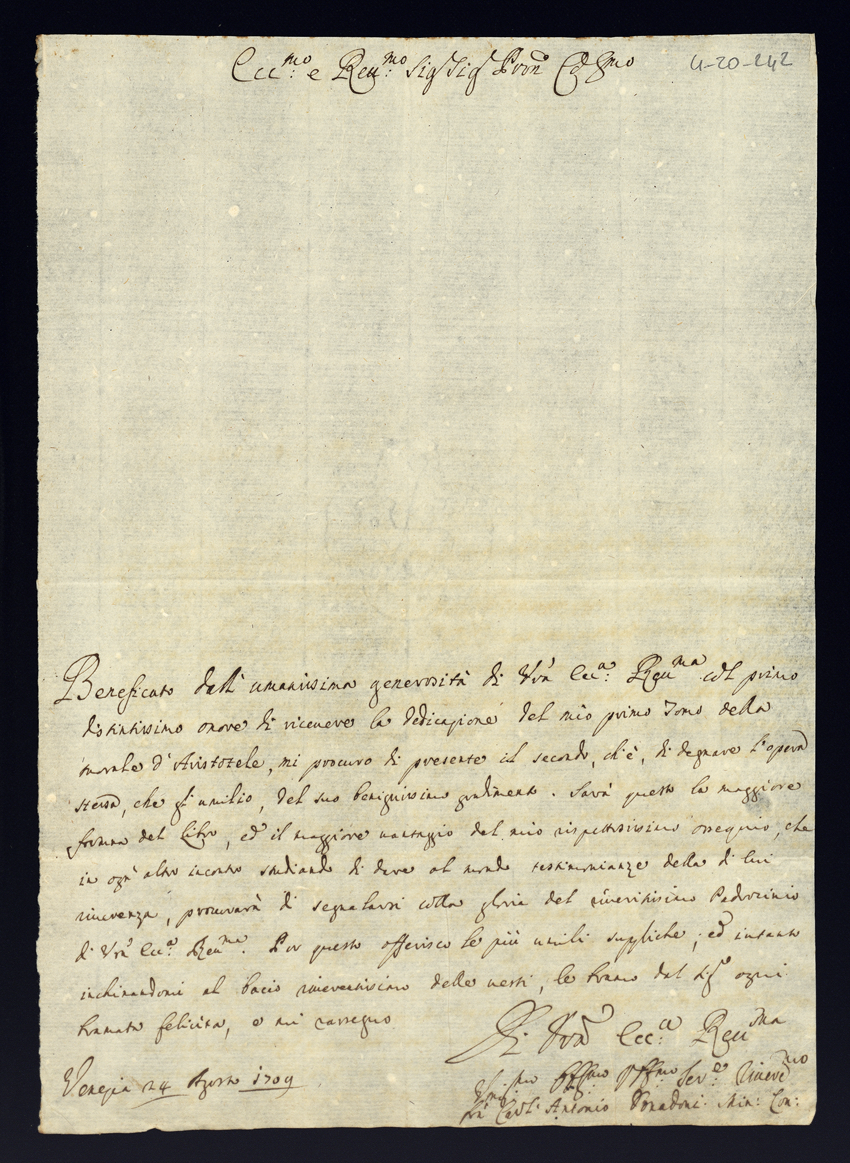 Ecc.mo e Reu.mo Sig.r Sig.r Pron Col.mo 4-20-242
Beneficato dall' umanissima generosità di Vra Ecc.a Reu.ma col primo
distintissimo onore di riceuere la dedicazione del mio primo Tomo della
morale d'Aristotele, mi procuro di presente il secondo, ch'è, di degnare l'opera
stessa, che gl'umilio, del suo benignissimo gradimento. Sarà questo la maggiore
fortuna del Libro, ed il maggiore uantaggio del mio rispettosissimo ossequio, che
in ogn'altro incontro studiando di dare al mondo testimonianze della di lui
riuerenza, procurarà di segnalarsi colla gloria del riueritissimo Padrocinio
di Vra Ecc.a Reu.ma. Per questo offerisco le più umili suppliche; ed intanto
inchinandomi al bacio riuerentissimo delle uesti, le bramo dal Sig.r ogni
bramata felicità, e mi rassegno
Di Vra Ecc.a Reu.ma
Venezia 24 Agosto 1709
Vmiliss.mo Deu.mo Oss.mo Ser.e Riuer.mo
Antonio Min: Con: